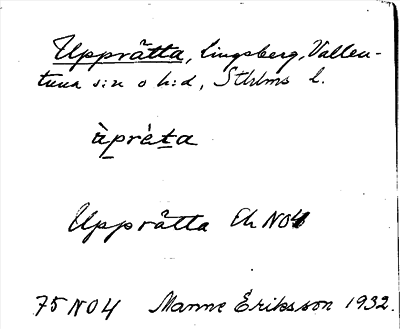 Upprätta, Lingsberg, Vallen-
tuna s:n o h:d, Sthlms l.
àprèta
Upprätta Ek NO4
75 NO4 Manne Eriksson 1932.